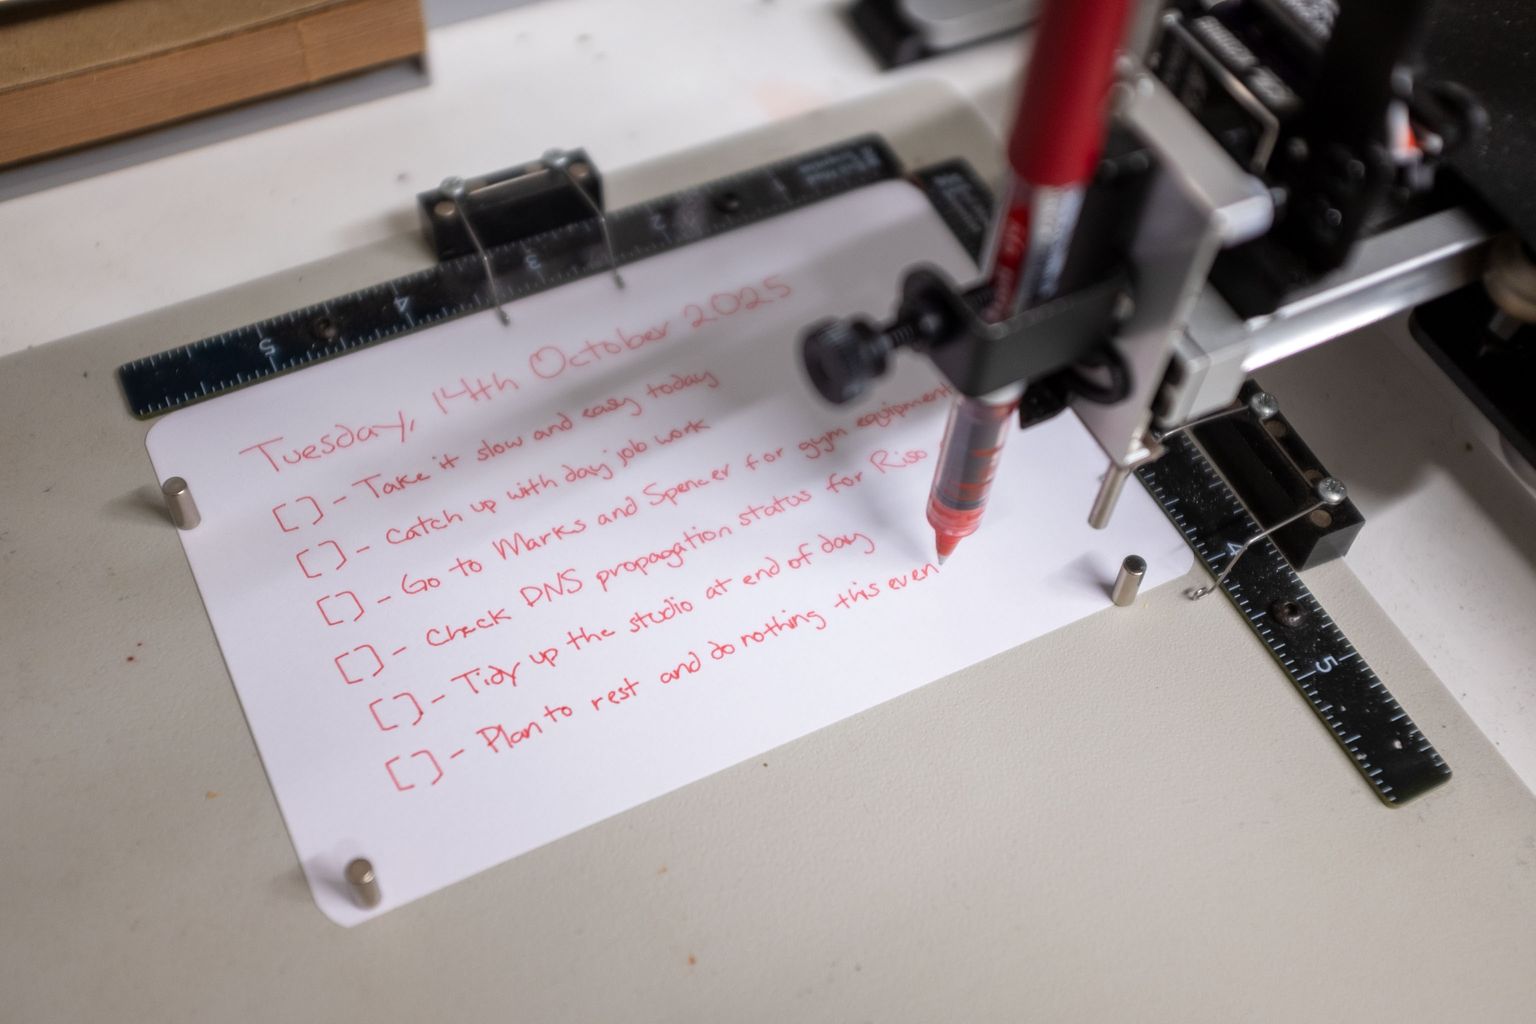 Tuesday, 14th October 2025
[ ] - Take it slow and easy today
[ ] - Catch up with day job work
[ ] - Go to Marks and Spencer for gym equipment
[ ] - Check DNS propagation status for Riso
[ ] - Tidy up the studio at end of day
[ ] - Plan to rest and do nothing this even
5
4
3
2
1
4
5